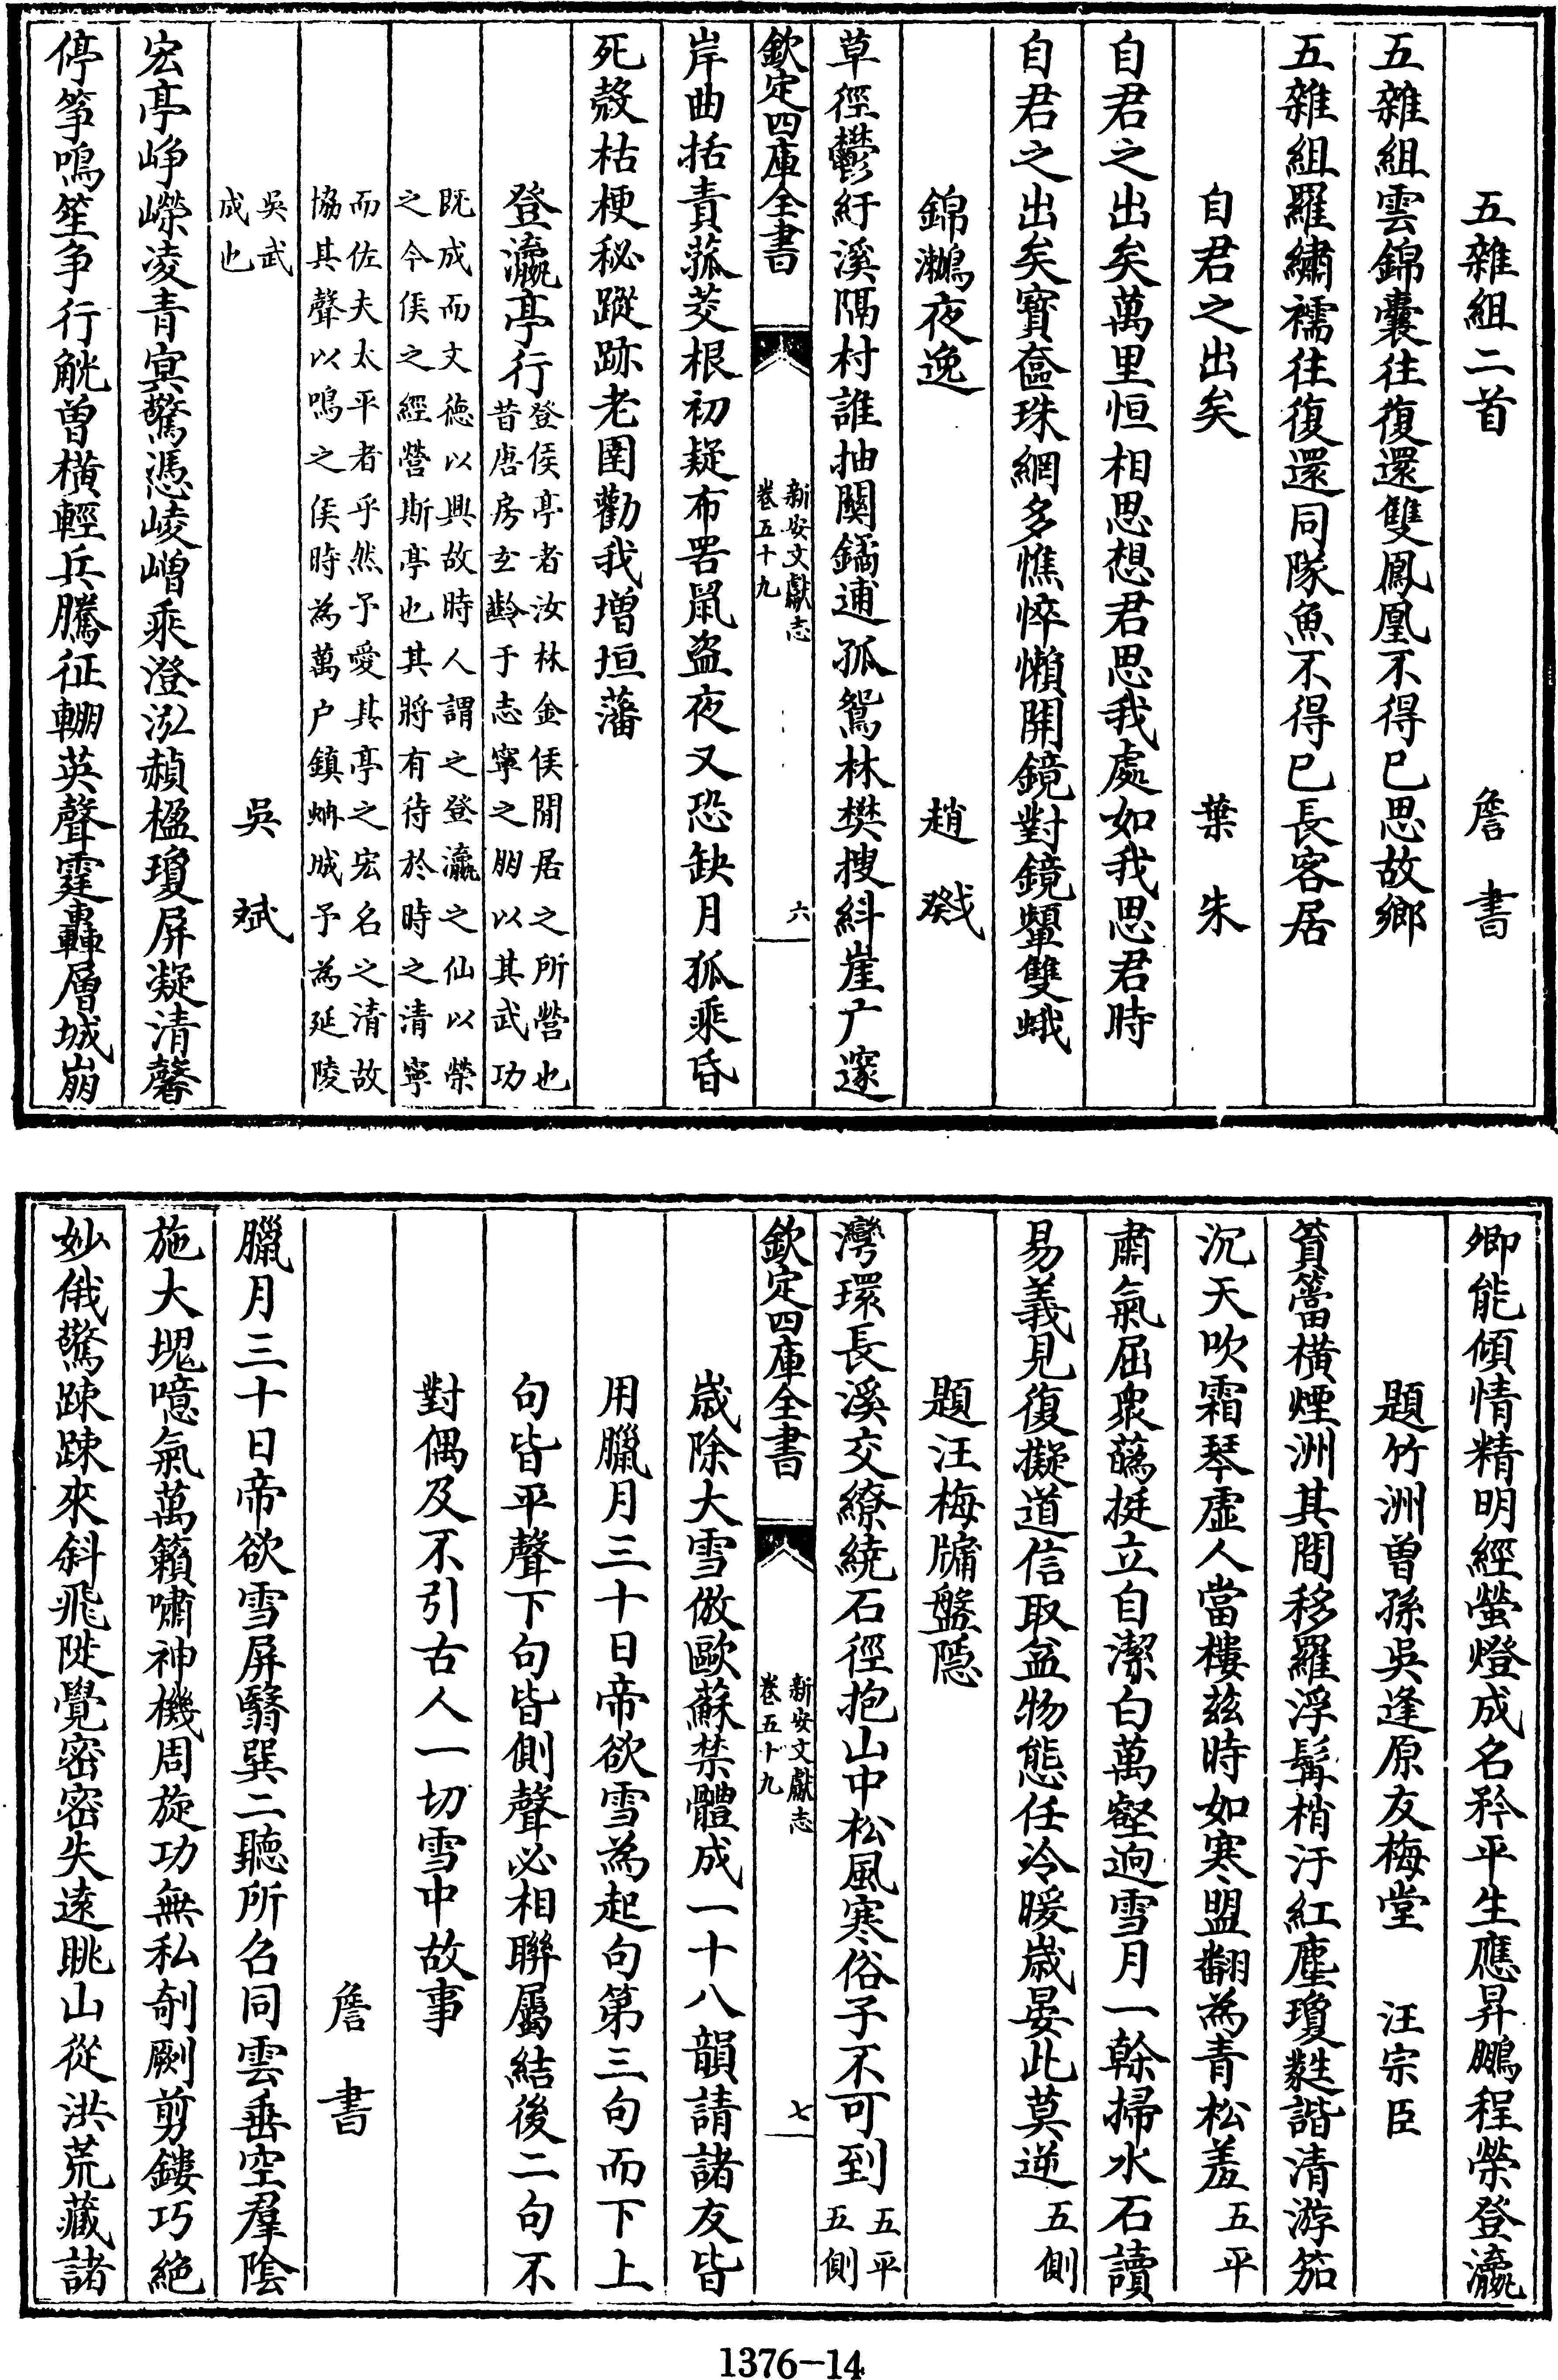 五雜組二首　詹　書
五雜組雲錦囊往復還雙鳳凰不得已思故鄉
五雜組羅繡襦往復還同隊魚不得已長客居
自君之出矣　葉　朱
自君之出矣萬里恒相思想君思我處如我思君時
自君之出矣寳奩珠網多憔悴懶開鏡對鏡顰雙蛾
錦鸂夜逸　趙　戣
草徑鬱紆溪隅村誰抽關鐍逋孤鴛林樊搜紏崖广邃
欽定四庫全書　新安文獻志　卷五十九　六
岸曲括責菰茭根初疑布罟鼠盜夜又恐缺月狐乘昏
死殼枯梗秘蹤跡老圉勸我增垣藩
登瀛亭行　登侯亭者汝林金侯閒居之所營也
昔唐房玄齡于志寧之朋以其武功
既成而文德以興故時人謂之登瀛之仙以榮
之今侯之經營斯亭也其將有待於時之清寧
而佐夫太平者乎然予愛其亭之宏名之清故
協其聲以鳴之侯時為萬户鎮蚺城予為延陵
吳武
成也
吳　斌
宏亭崢嶸凌青㝠驚憑崚嶒乘澄泓赬楹瓊屏凝清馨
停筝鳴笙争行觥曽橫輕兵騰征輣英聲霆轟層城崩
卿能傾情精明經螢燈成名矜平生應昇鵬程榮登瀛
題竹洲曽孫吳逢原友梅堂　汪宗臣
篔簹橫煙洲其間移羅浮髯梢汙紅塵瓊甤諧清游笳
沉天吹霜琴虛人當樓兹時如寒盟翻為青松羞　五平
肅氣屈衆蘤挺立自潔白萬壑逈雪月一榦掃水石讀
易義見復擬道信取盆物態任冷暖嵗晏此莫逆　五側
題汪梅牖盤隠
灣環長溪交繚繞石徑抱山中松風寒俗子不可到　五平
五側
欽定四庫全書　新安文獻志　卷五十九　七
嵗除大雪倣歐蘇禁體成一十八韻請諸友皆
用臘月三十日帝欲雪為起句第三句而下上
句皆平聲下句皆側聲必相聯屬結後二句不
對偶及不引古人一切雪中故事
詹　書
臘月三十日帝欲雪屏翳巽二聽所名同雲垂空羣陰
施大塊噫氣萬籟嘯神機周旋功無私剞劂剪鏤巧絶
妙俄驚踈踈來斜飛陡覺密密失遠眺山從洪荒藏諸
1376—14